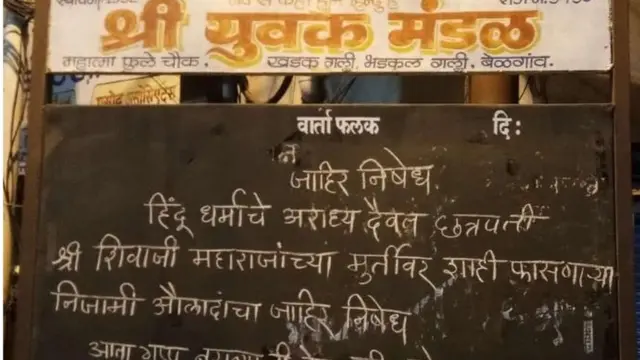 श्री युवक मंडळ
महात्मा फुले चौक, खडक गल्ली, भडकल गल्ली, बेळगांव.
वार्ता फलक दि:
जाहिर निषेध
हिंदू धर्माचे अराध्य दैवत छत्रपती
श्री शिवाजी महाराजांच्या मुर्तीवर शाही फासणाऱ्या
निजामी औलादांचा जाहिर निषेध
आता गप्प